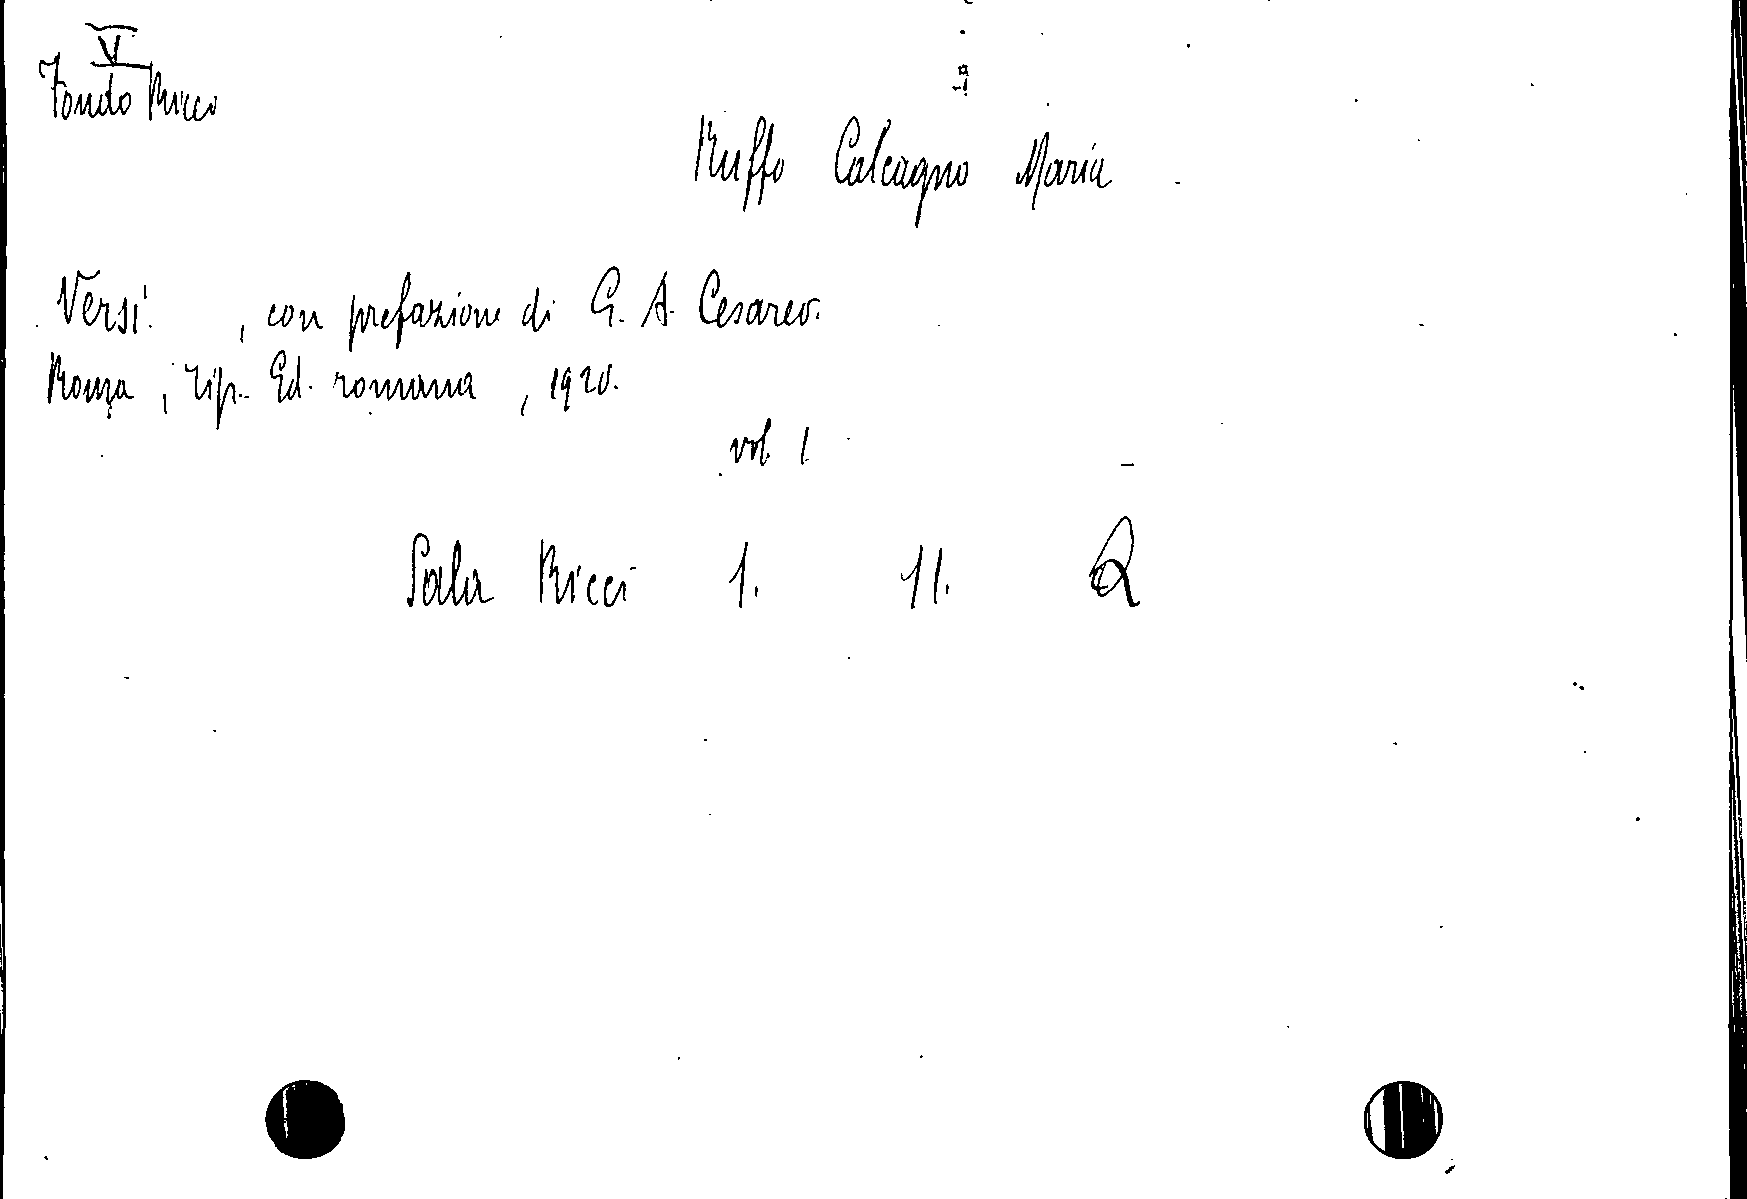 V
Fondo Ricci
Ruffo Calcagno Maria
Versi , con prefazione di G. A. Cesareo.
Roma, Tip. Ed. romana, 1920.
vol. 1
Sala Ricci 1. 11.